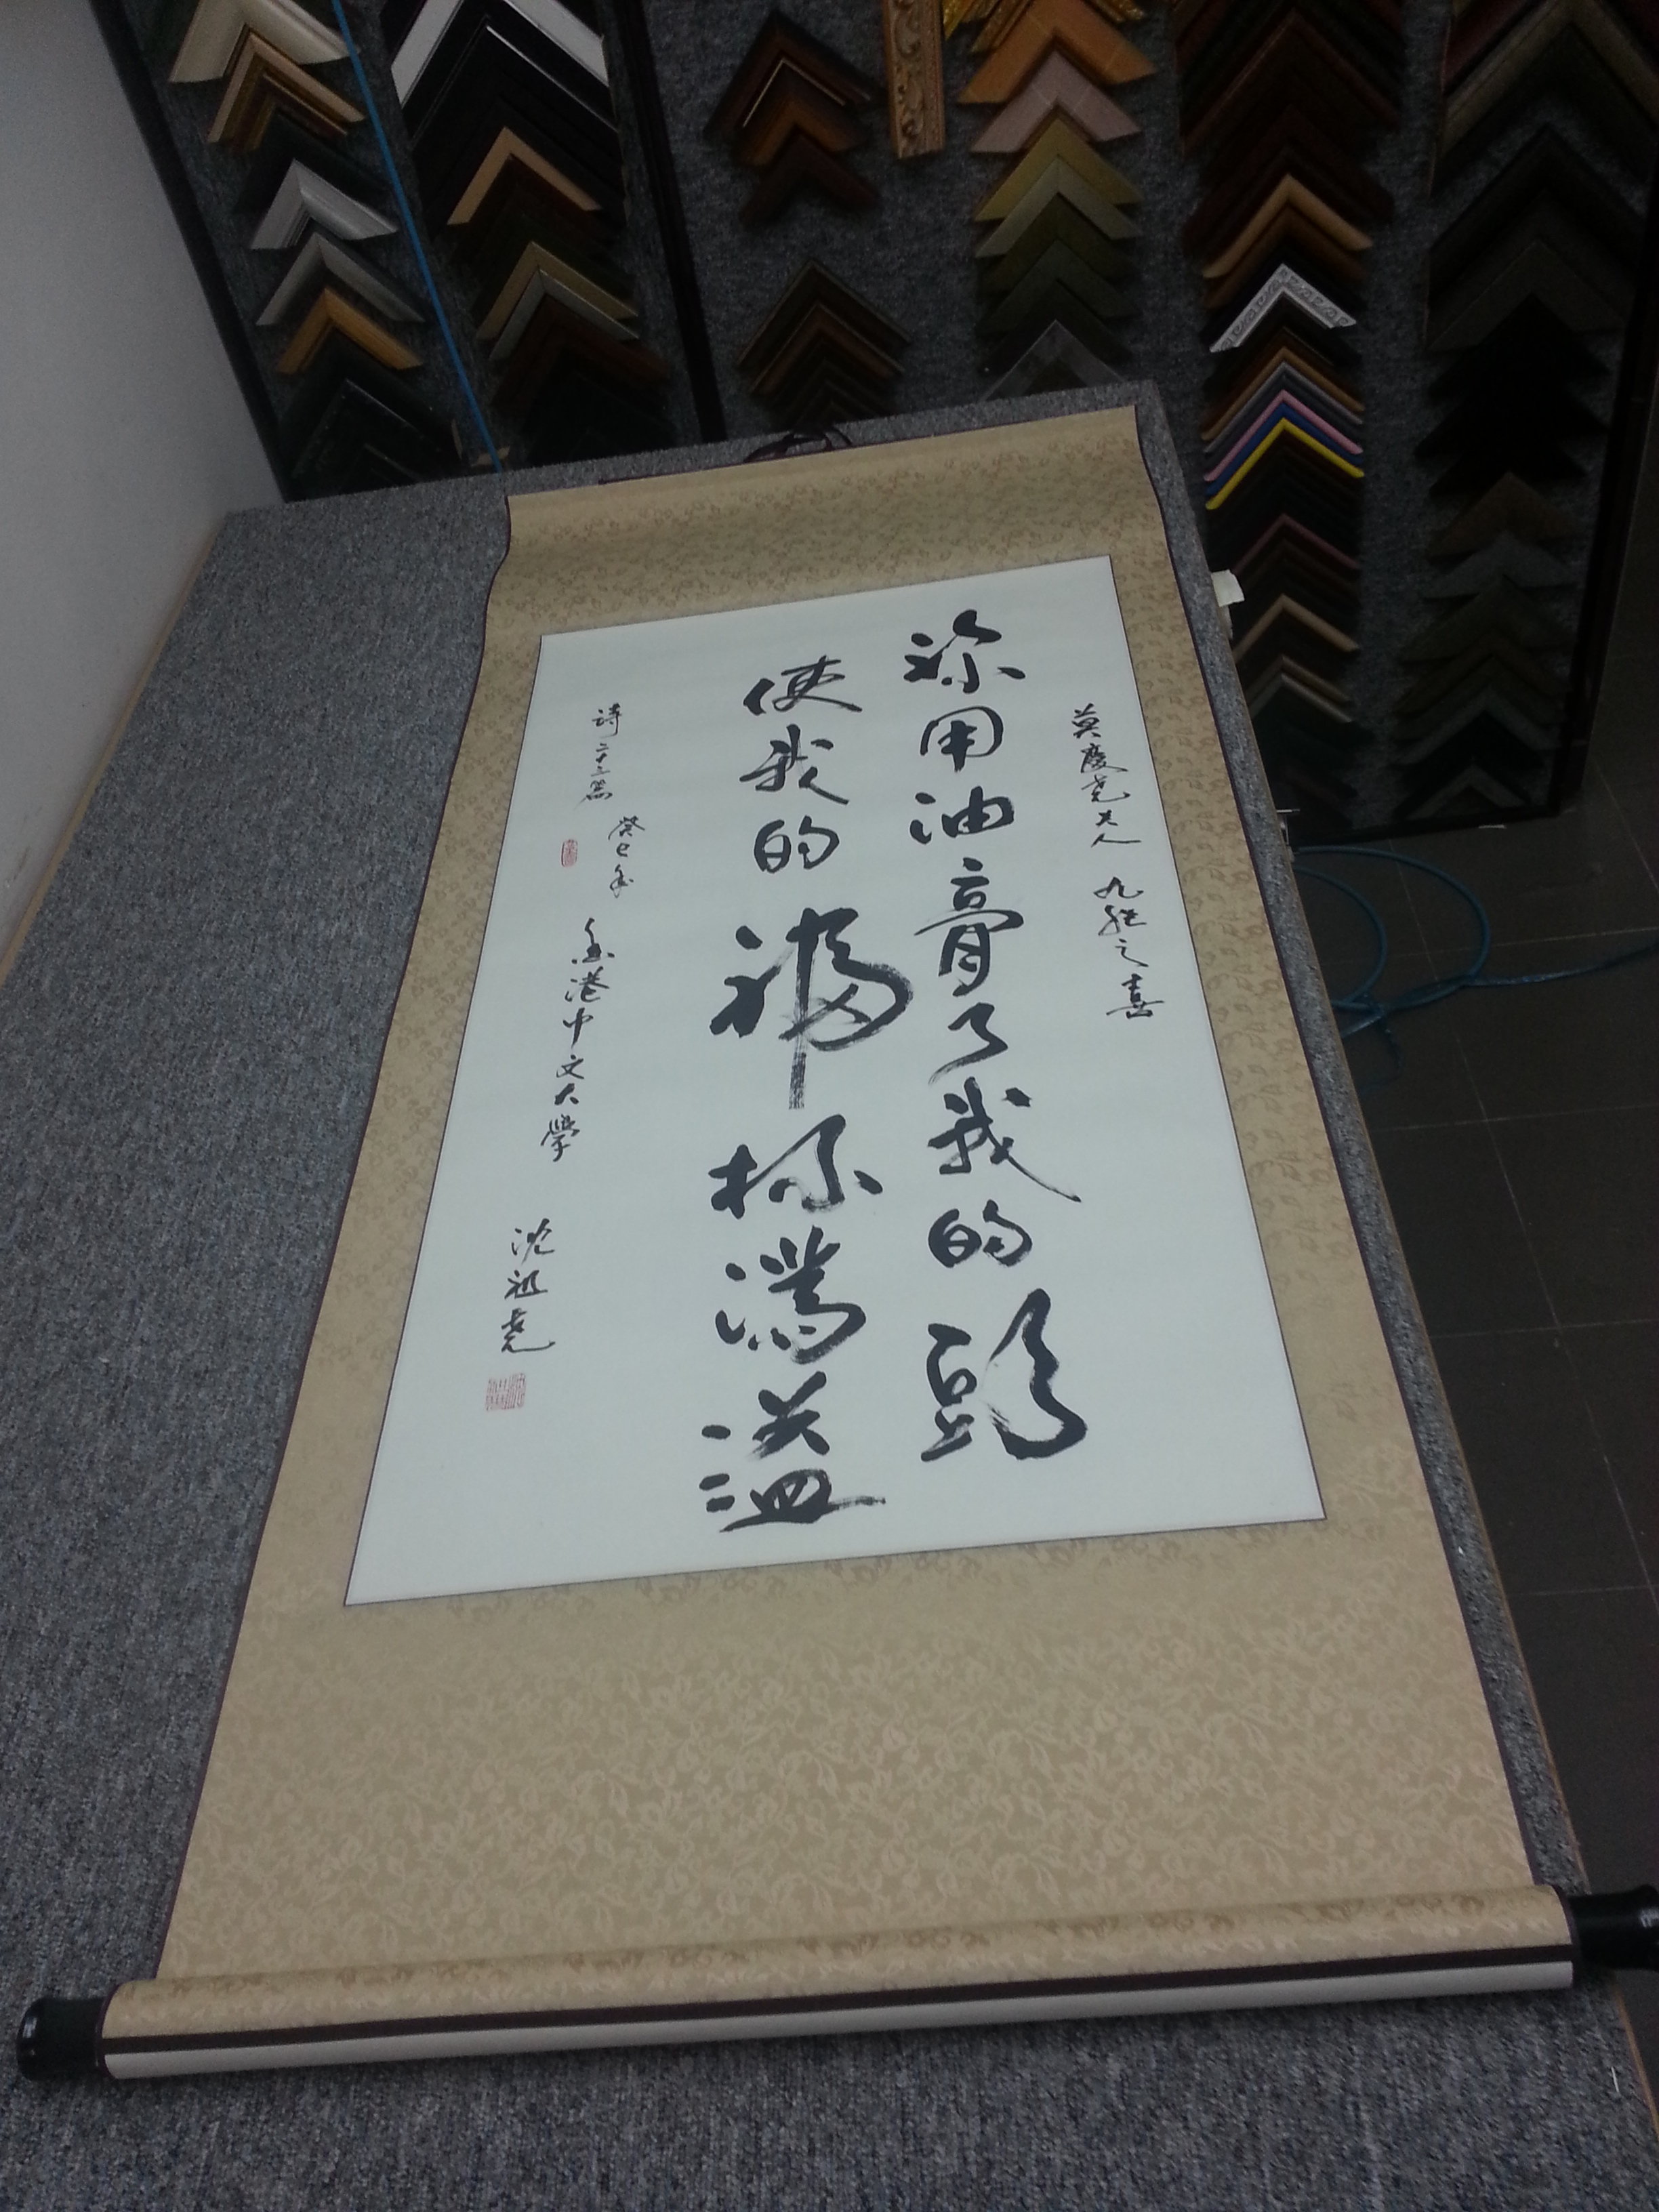 莫慶堯夫人 九秩之喜
祢用油膏了我的頭
使我的福杯滿溢
詩二十三篇
癸巳年 香港中文大學 沈祖堯